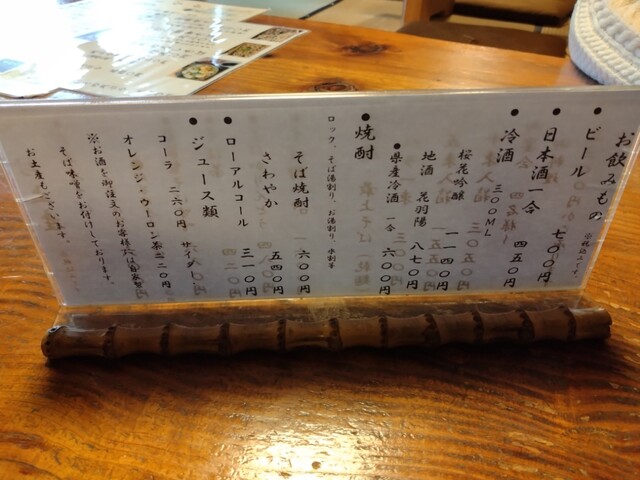 お飲みもの
●ビール 七〇〇円
●日本酒一合 四五〇円
●冷酒 三〇〇ML
桜花吟醸 一一四〇円
地酒 花羽陽 八七〇円
●県産冷酒 一合 六〇〇円
●焼酎
ロック、そば湯割り、お湯割り、水割等
そば焼酎 六〇〇円
さわやか 五四〇円
●ローアルコール 三一〇円
●ジュース類
コーラ 二六〇円 サイダー
オレンジ・ウーロン茶 二二〇円
※お酒を御注文のお客様には自家製
そば味噌をお付けしております。
お土産もございます。